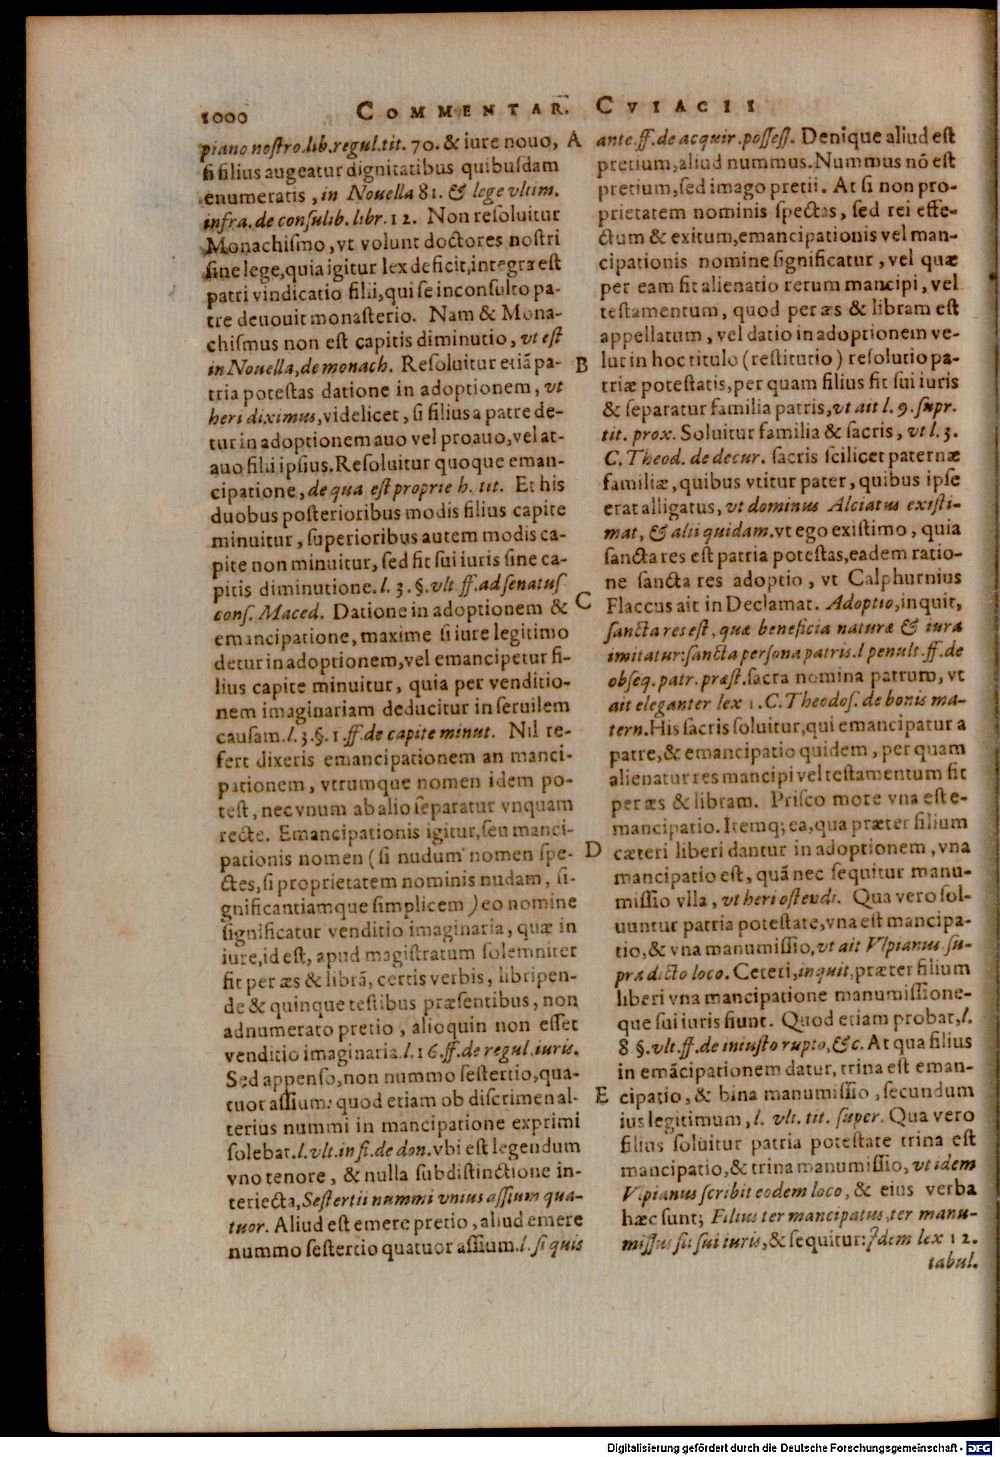 1000
COMMENTAR. CVIACII
piano nostro.lib.regul.tit. 70. & iure nouo,
si filius augeatur dignitatibus quibusdam
enumeratis, in Nouella 81. & lege vltim.
infra. de consulib. libr. 12. Non resoluitur
Monachismo, vt volunt doctores nostri
sine lege, quia igitur lex deficit, integra est
patri vindicatio filii, qui se inconsulto pa-
tre deuouit monasterio. Nam & Mona-
chismus non est capitis diminutio, vt est
in Nouella, de monach. Resoluitur etiã pa-
tria potestas datione in adoptionem, vt
heri diximus, videlicet, si filius a patre de-
tur in adoptionem auo vel proauo, vel at-
auo filii ipsius. Resoluitur quoque eman-
cipatione, de qua est proprie h. tit. Et his
duobus posterioribus modis filius capite
minuitur, superioribus autem modis ca-
pite non minuitur, sed fit sui iuris sine ca-
pitis diminutione. l. 3. §. vlt. ff. ad senatus
cons. Maced. Datione in adoptionem &
emancipatione, maxime si iure legitimo
detur in adoptionem, vel emancipetur fi-
lius capite minuitur, quia per venditio-
nem imaginariam deducitur in seruilem
causam. l. 3. §. 1. ff. de capite minut. Nil re-
fert dixeris emancipationem an manci-
pationem, vtrumque nomen idem po-
test, nec vnum ab alio separatur vnquam
recte. Emancipationis igitur, seu manci-
pationis nomen (si nudum nomen spe-
ctes, si proprietatem nominis nudam, si-
gnificantiamque simplicem) eo nomine
significatur venditio imaginaria, quæ in
iure, id est, apud magistratum solemniter
fit per æs & librã, certis verbis, libripen-
de & quinque testibus præsentibus, non
adnumerato pretio, alioquin non esset
venditio imaginaria. l. 16. ff. de regul. iuris.
Sed appenso, non nummo sestertio, qua-
tuor assium: quod etiam ob discrimen al-
terius nummi in mancipatione exprimi
solebat. l. vlt. in fi. de don. vbi est legendum
vno tenore, & nulla subdistinctione in-
teriecta, Sestertii nummi vnius assium qua-
tuor. Aliud est emere pretio, aliud emere
nummo sestertio quatuor assium. l. si quis
A
B
C
D
E
ante. ff. de acquir. possess. Denique aliud est
pretium, aliud nummus. Nummus nõ est
pretium, sed imago pretii. At si non pro-
prietatem nominis spectas, sed rei effe-
ctum & exitum, emancipationis vel man-
cipationis nomine significatur, vel quæ
per eam fit alienatio rerum mancipi, vel
testamentum, quod per æs & libram est
appellatum, vel datio in adoptionem ve-
lut in hoc titulo (restitutio) resolutio pa-
triæ potestatis, per quam filius fit sui iuris
& separatur familia patris, vt ait l. 9. supr.
tit. prox. Soluitur familia & sacris, vt l. 3.
C. Theod. de decur. sacris scilicet paternæ
familiæ, quibus vtitur pater, quibus ipse
erat alligatus, vt dominus Alciatus existi-
mat, & alii quidam. vt ego existimo, quia
sancta res est patria potestas, eadem ratio-
ne sancta res adoptio, vt Calphurnius
Flaccus ait in Declamat. Adoptio, inquit,
sancta res est, quæ beneficia naturæ & iura
imitatur: sancta persona patris. l penult. ff. de
obseq. patr. præst. sacra nomina patrum, vt
ait eleganter lex 1. C. Theodos. de bonis ma-
tern. His sacris soluitur, qui emancipatur a
patre, & emancipatio quidem, per quam
alienatur res mancipi vel testamentum fit
per æs & libram. Prisco more vna est e-
mancipatio. Itemq; ea, qua præter filium
cæteri liberi dantur in adoptionem, vna
mancipatio est, quã nec sequitur manu-
missio vlla, vt heri ostendi. Qua vero sol-
uuntur patria potestate, vna est mancipa-
tio, & vna manumissio, vt ait Vlpianus su-
pra dicto loco. Ceteri, inquit, præter filium
liberi vna mancipatione manumissione-
que sui iuris fiunt. Quod etiam probat, l.
8 §. vlt. ff. de iniusto rupto, &c. At qua filius
in emãcipationem datur, trina est eman-
cipatio, & bina manumissio, secundum
ius legitimum, l. vlt. tit. super. Qua vero
filius soluitur patria potestate trina est
mancipatio, & trina manumissio, vt idem
Vlpianus scribit eodem loco, & eius verba
hæc sunt; Filius ter mancipatus, ter manu-
missus fit sui iuris, & sequitur: Idem lex 12.
tabul.
Digitalisierung gefördert durch die Deutsche Forschungsgemeinschaft - DFG